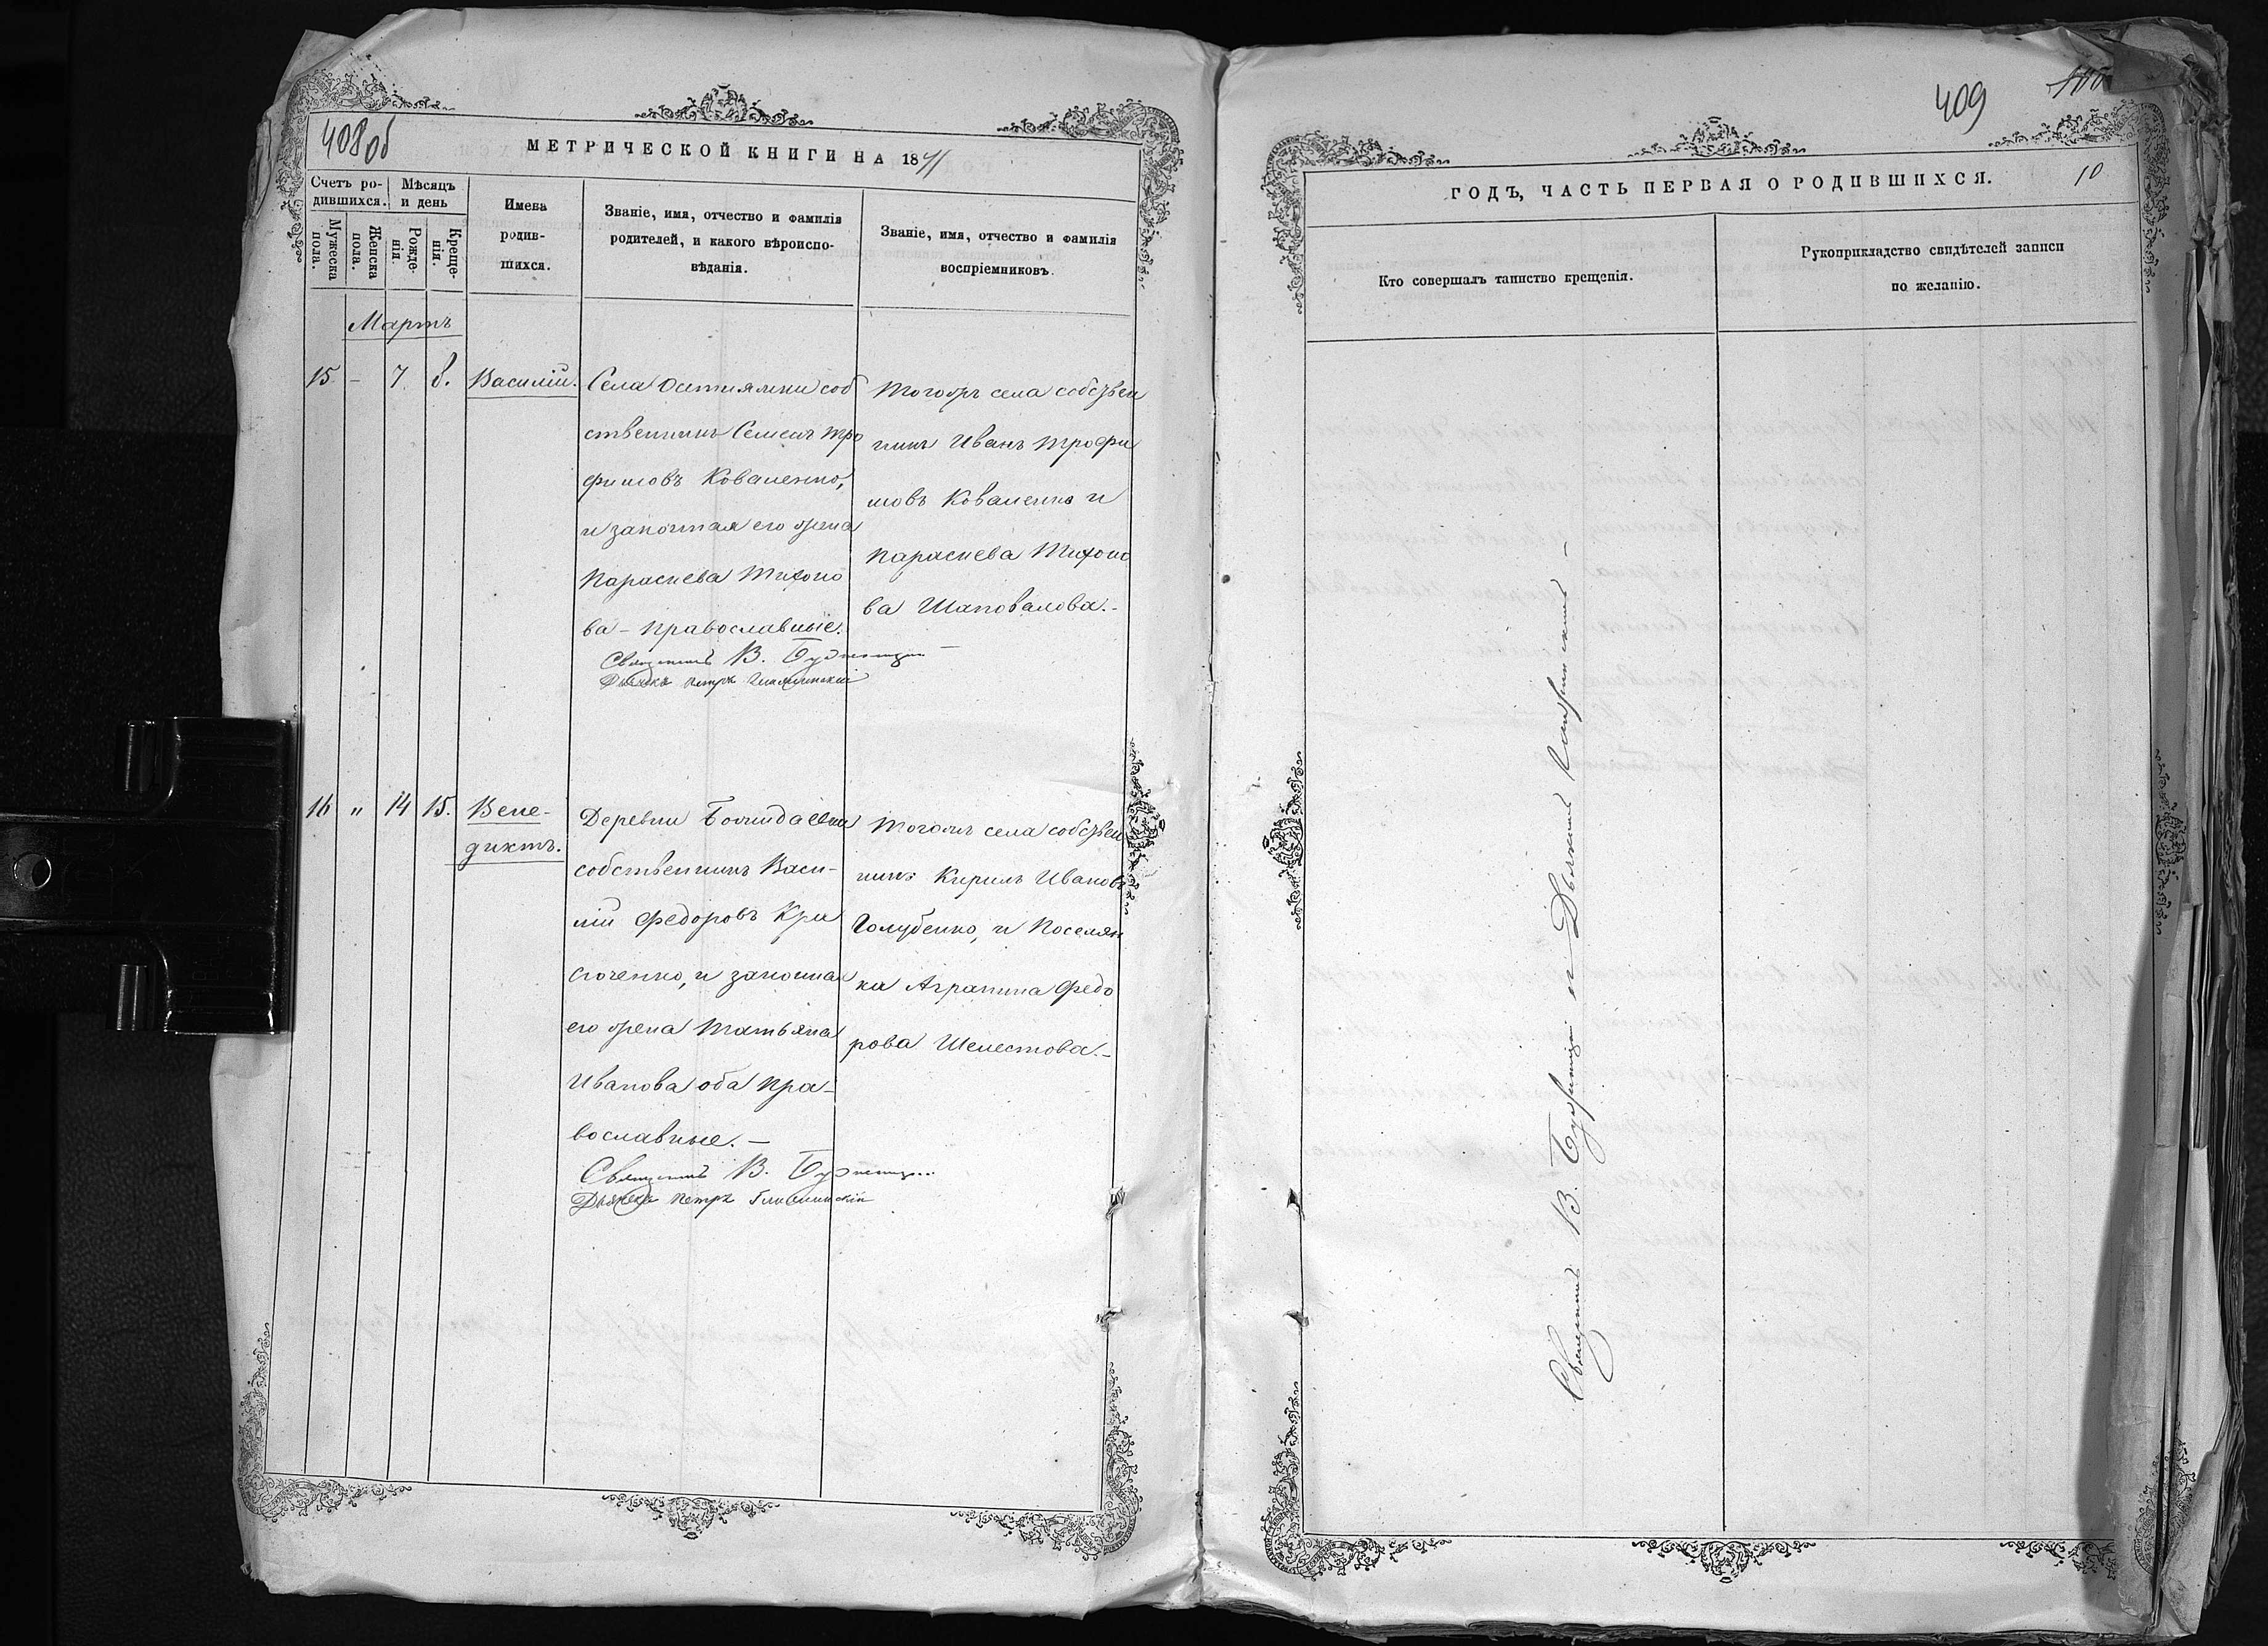 408 об
МЕТРИЧЕСКОЙ КНИГИ НА 1871
Счетъ ро-
дившихся.
Мѣсяцъ
и день
Мужеска
пола.
Женска
пола.
Рожде-
нія.
Креще-
нія.
Имена
родив-
шихся.
Званіе, имя, отчество и фамилія
родителей, и какого вѣроиспо-
вѣданія.
Званіе, имя, отчество и фамилія
воспріемниковъ.
Мартъ
15 - 7. 8. Василій.
Села соб
ственникъ Семенъ Тро
фимовъ Коваленко,
и законная его жена
Параскева Тихоно
ва - православные.
Священникъ В.
Дьячекъ Петръ
Тогожъ села собствен
никъ Иванъ Трофи
мовъ Коваленко и
Параскева Тихоно
ва Шаповалова.-
16 " 14 15. Вене-
диктъ.
Деревни
собственникъ Васи-
лій Федоровъ Кри
сюченко, и законная
его жена Татьяна
Иванова оба пра-
вославные. -
Священникъ В.
Дьячекъ Петръ
Тогожъ села собствен
никъ Кирилъ Ивановъ
Голубенко, и Поселян
ка Агрипина Федо
рова Шелестова.-
409
10
ГОДЪ, ЧАСТЬ ПЕРВАЯ О РОДИВШИХСЯ.
Кто совершалъ таинство крещенія.
Рукоприкладство свидѣтелей записи
по желанію.
Священникъ В. съ Дьячкомъ